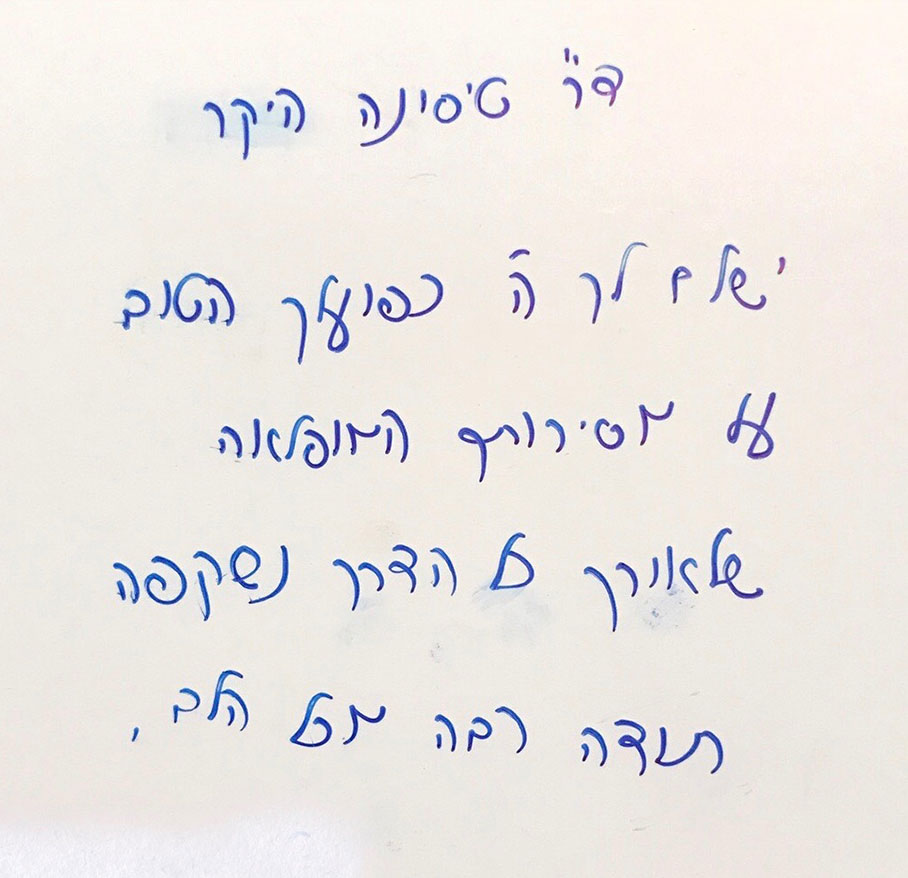 ד"ר טיסונה היקר
ישלח לך ה' כפועלך הטוב
על מסירותך המופלאה
שלאורך כל הדרך נשקפה
תודה רבה מכל הלב,